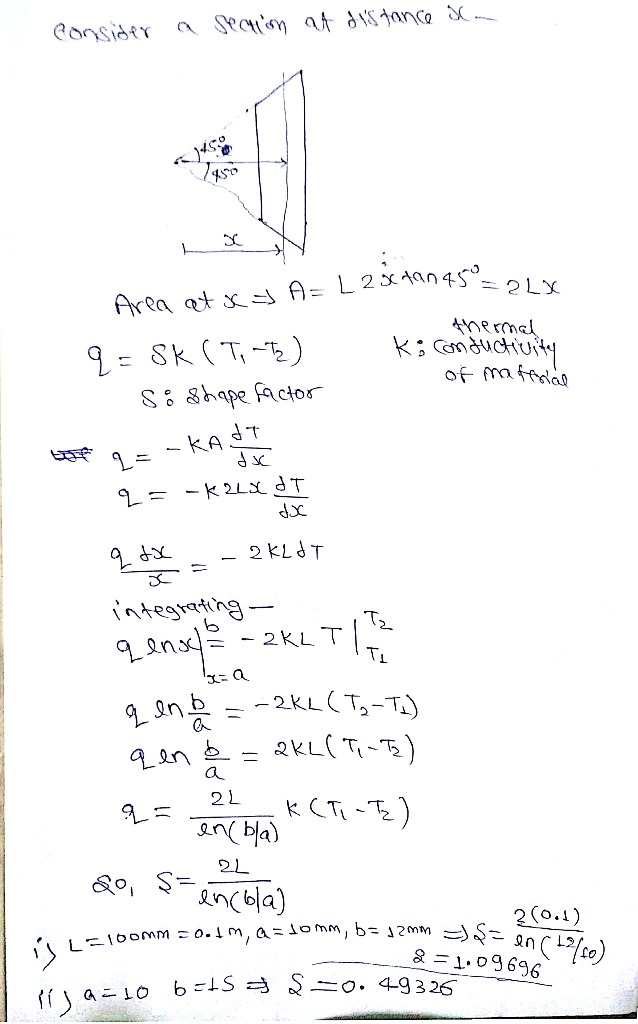 Consider a section at distance x—
45°
45°
x
Area at x ⇒ A = L 2x tan 45° = 2Lx
q = SK (T₁-T₂)
K: thermal conductivity of material
S: Shape factor
q = -KA dT/dx
q = -K2Lx dT/dx
q dx/x = -2KLdT
integrating—
q lnx|ᵇₓ₌ₐ = -2KL T|ᵀ²ₜ₁
q ln b/a = -2KL(T₂-T₁)
q ln b/a = 2KL(T₁-T₂)
q = 2L/ln(b/a) K (T₁-T₂)
So, S = 2L/ln(b/a)
i) L=100mm = 0.1m, a=10mm, b=12mm ⇒ S= 2(0.1)/ln(12/10)
S = 1.09696
ii) a=10 b=15 ⇒ S=0.49326